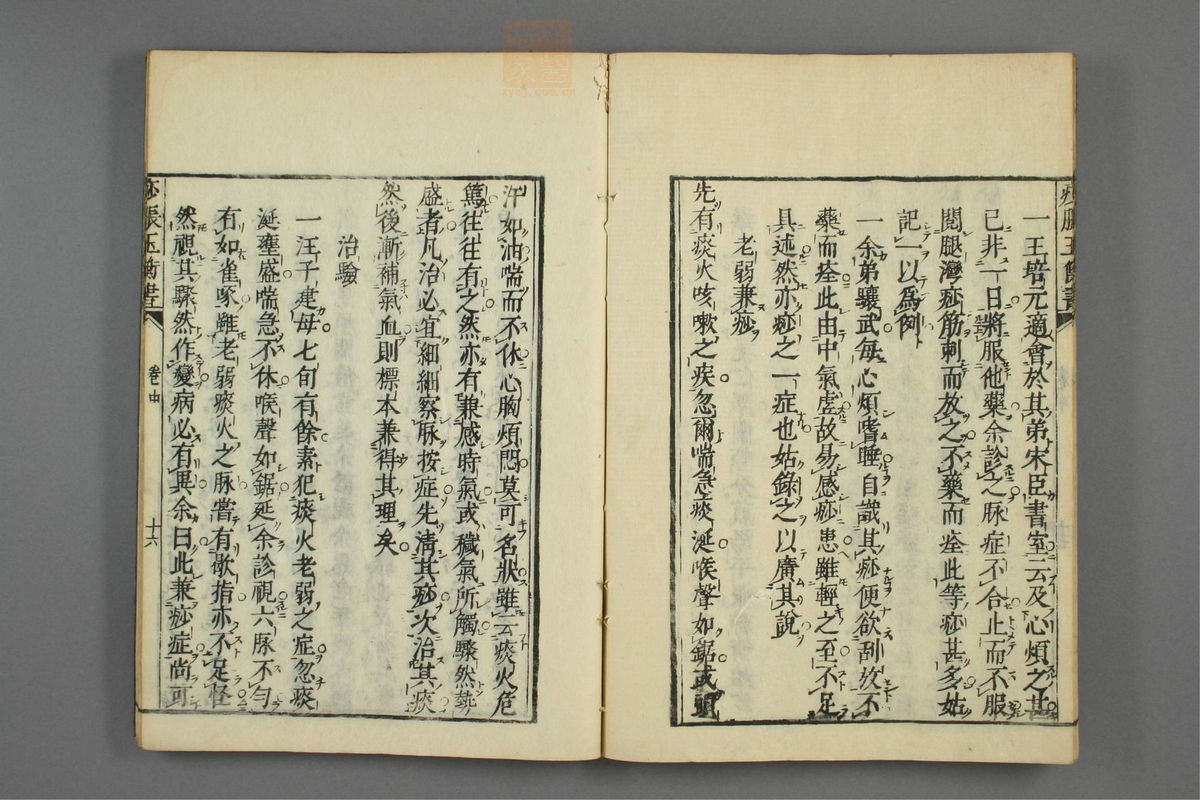 痧脹玉衡書
一王培元適會於其弟宋臣書室云及心煩之甚
已非一日將服他藥余診之脉症不合止而不服
閱腿灣痧筋刺而放之不藥而痊此等痧甚多姑
記一以為例
一余弟驤武每心煩嗜睡自識其痧便欲刮放不
藥而痊此由中氣虛故易感痧患雖輕之至不足
具述然亦痧之一症也姑錄之以廣其說
老弱兼痧
先有痰火咳嗽之疾忽爾喘急痰涎喉聲如鋸或頭
汗如油喘而不休心胸煩悶莫可名狀雖云痰火危
篤往往有之然亦有兼感時氣或穢氣所觸驟然勢
盛者凡治必宜細細察脉按症先清其痧次治其痰
然後漸補氣血則標本兼得其理矣
治驗
一汪子建母七旬有餘素犯痰火老弱之症忽痰
涎壅盛喘急不休喉聲如鋸延余診視六脉不勻
有如雀啄雖老弱痰火之脉嘗有歇指亦不足怪
然視其驟然作變病必有異余曰此兼痧症尚可
痧脹玉衡書
卷中
十六